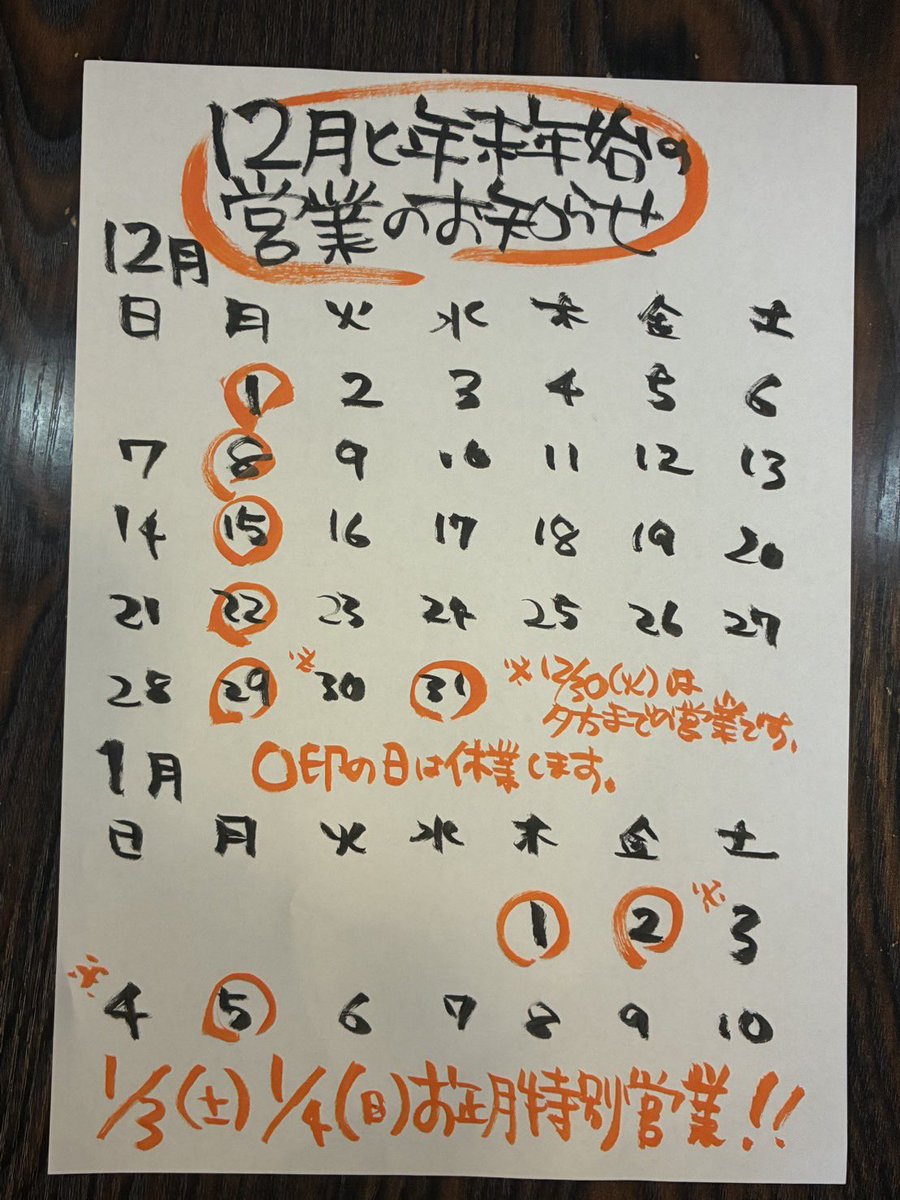 12月と年末年始の
営業のお知らせ
12月
日 月 火 水 木 金 土
1 2 3 4 5 6
7 8 9 10 11 12 13
14 15 16 17 18 19 20
21 22 23 24 25 26 27
28 29 ※30 31 ※12/30(火)は
夕方までの営業です。
1月 〇印の日は休業します。
日 月 火 水 木 金 土
1 2 ※3
※4 5 6 7 8 9 10
1/3(土) 1/4(日)お正月特別営業!!